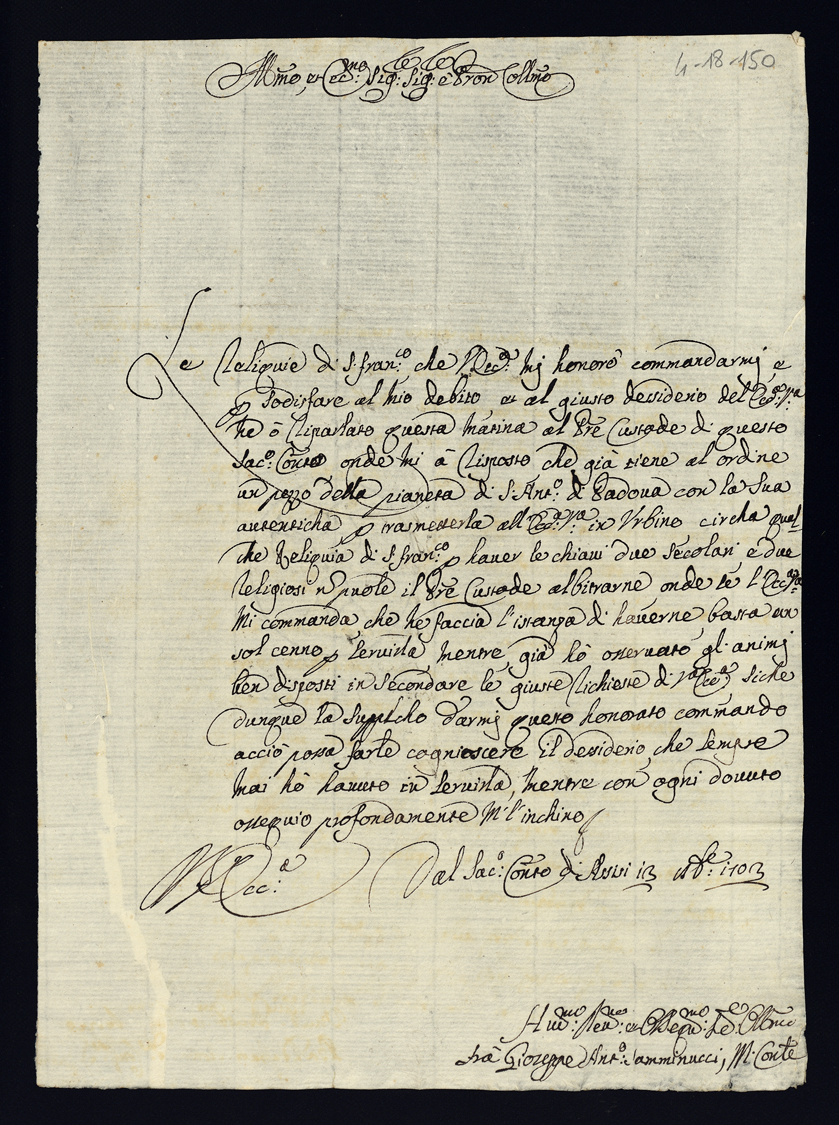 4-18-150
Ill.mo, et Ecc.mo Sig:re Sig:re e Pron Coll.mo
Le Reliquie di S. Fran:co che V. Ecc:a Mi honorò commandarmi e
p sodisfare al Mio debito et al giusto dessiderio del Ecc:a V:a
ne ò riparlato questa Matina al Pre Custode di questo
Sac:o Conto onde Mi à risposto che già tiene al ordine
un pezzo della pianeta di S. Ant:o di Padova con la Sua
autenticha p trasmetterla all Ecc:a V:a in Urbino circha qual
che Reliquia di S. Fran:co p haver le chiavi due secolari e due
religiosi n puole il Pre Custode arbitrarne onde se l'Ecc:a V:a
Mi commanda che ne faccia l'istanza di haverne basta un
sol cenno p servirla Mentre già hò osservato gl'animi
ben disposti in secondare le giuste richieste di V:a Ecc:a, siche
dunque la supplicho darmi questo honorato commando
acciò possa farle cognioscere il dessiderio che sempre
Mai hò havuto in servirla, Mentre con ogni dovuto
ossequio profondamente M'l'inchino
V. Ecc:a Dal Sac:o Conto di Assisi 13 1703
Hu:mo Dev:mo et Obblig:mo Se:re Oblmo
frà Gioseppe Ant:o Samminucci, M: Conte